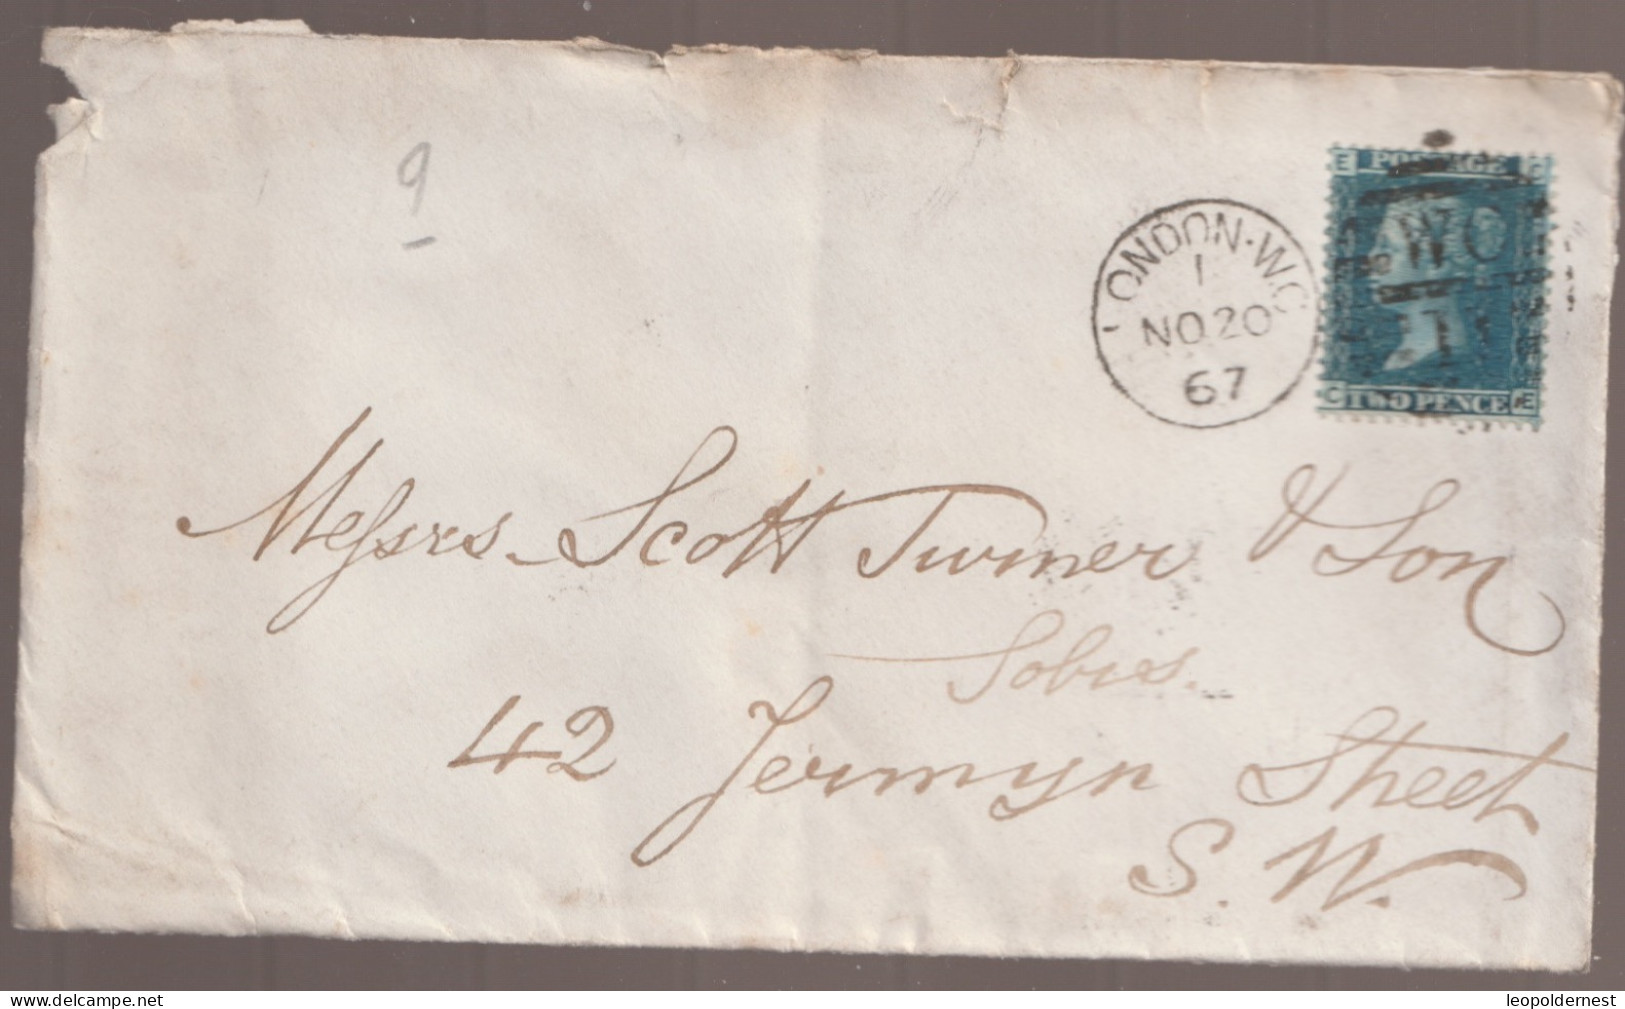 9
E POSTAGE C
LONDON·W.C
1
NO 20
67
WC
C TWO PENCE E
Messrs Scott Turner & Son
42 Jermyn Street
S.W.
delcampe.net
leopoldernest